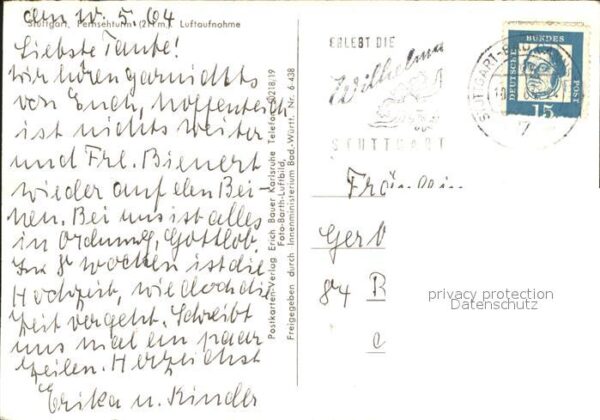 Stuttgart, Fernsehturm (211 m), Luftaufnahme
den 10. 5. 64
Liebste Tante!
Wir hören garnichts
von Euch, hoffentlich
ist nichts weiter
und Frl. Bienert
wieder auf den Bei-
nen. Bei uns ist alles
in Ordnung, Gottlob.
In 8 Wochen ist die
Hochzeit, wie doch die
Zeit vergeht. Schreibt
uns mal ein paar
Zeilen. Herzlichst
Erika u. Kinder
Postkarten-Verlag Erich Bauer Karlsruhe Telefon 0218.19
Foto-Barth-Luftbild,
Freigegeben durch Innenministerium Bad.-Württ. Nr. 6-438
ERLEBT DIE
Wilhelma
STUTTGART
STUTTGART-BAD
DEUTSCHE BUNDESPOST
15
Fräulein
Gerb
84 B
privacy protection
Datenschutz